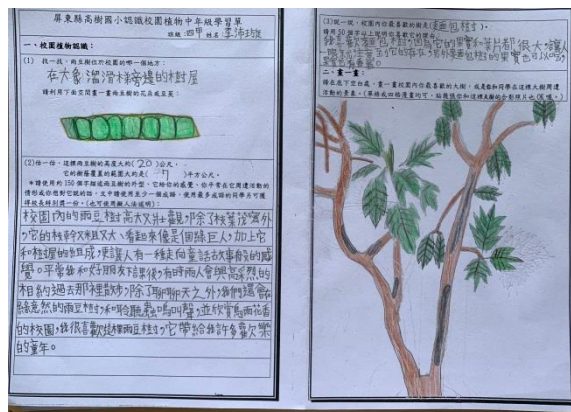 屏東縣高樹國小認識校園植物中年級學習單
班級:四甲 姓名:李沛璇
一、校園植物認識:
(1) 找一找,雨豆樹位於校園的哪一個地方:
在大象溜滑梯旁邊的樹屋
請利用下面空間畫一畫雨豆樹的花朵或豆莢:
(2)估一估,這棵雨豆樹的高度大約(20)公尺,
它的樹蔭覆蓋的範圍大約是(7)平方公尺。
*請使用約150個字描述雨豆樹的外型、它給你的感覺、你平常在它周遭活動的
情形或你想對它說的話。文中請使用至少一個成語,使用最多成語的同學另可獲
得校長特別獎一份。(也可使用擬人法說明):
校園內的雨豆樹高大又壯觀,除了枝葉茂密外
,它的枝幹又粗又大、看起來像是個綠巨人,加上它
和樹屋的組成,更讓人有一種走向童話故事般的感
覺。平常我和好朋友下課後,有時兩人會興高采烈的
相約過去那裡散步,除了聊聊天之外,我們還會在
綠意盎然的雨豆樹和聆聽蟲鳴叫聲,並欣賞鳥語花香
的校園,我很喜歡這棵雨豆樹,它帶給我許多歡樂
的童年。
(3)說一說,校園內你最喜歡的樹是(麵包樹),
請用50個字以上說明你喜歡它的理由。
我喜歡麵包樹,因為它的果實和葉片都很大,讓人
二、畫一畫:
請在底下空白處,畫一畫校園內你最喜歡的大樹,或是你和同學在這棵大樹周遭
活動的景象。(單格或四格漫畫均可,貼幾張你和這棵大樹的合影照片也